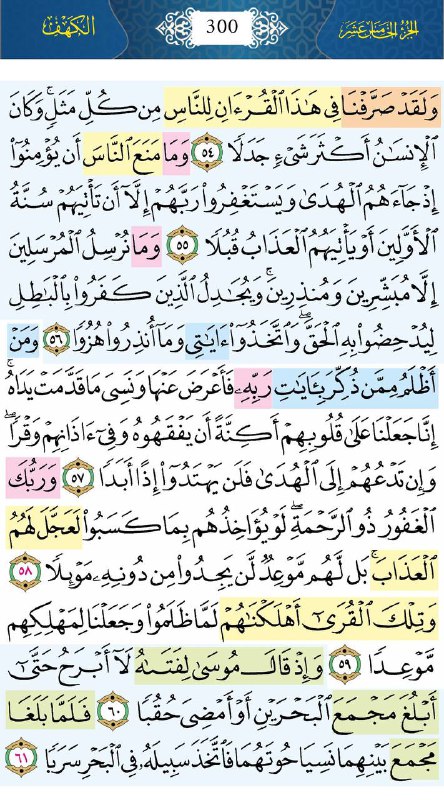 الجزء الخامس عشر 300 الكهف
وَلَقَدْ صَرَّفْنَا فِي هَٰذَا الْقُرْءَانِ لِلنَّاسِ مِن كُلِّ مَثَلٍ ۚ وَكَانَ
الْإِنسَٰنُ أَكْثَرَ شَيْءٍ جَدَلًا ٥٤ وَمَا مَنَعَ النَّاسَ أَن يُؤْمِنُوٓا۟
إِذْ جَآءَهُمُ الْهُدَىٰ وَيَسْتَغْفِرُوا۟ رَبَّهُمْ إِلَّآ أَن تَأْتِيَهُمْ سُنَّةُ
الْأَوَّلِينَ أَوْ يَأْتِيَهُمُ الْعَذَابُ قُبُلًا ٥٥ وَمَا نُرْسِلُ الْمُرْسَلِينَ
إِلَّا مُبَشِّرِينَ وَمُنذِرِينَ ۚ وَيُجَٰدِلُ الَّذِينَ كَفَرُوا۟ بِالْبَٰطِلِ
لِيُدْحِضُوا۟ بِهِ الْحَقَّ ۖ وَاتَّخَذُوٓا۟ ءَايَٰتِي وَمَآ أُنذِرُوا۟ هُزُوًا ٥٦ وَمَنْ
أَظْلَمُ مِمَّن ذُكِّرَ بِـَٔايَٰتِ رَبِّهِۦ فَأَعْرَضَ عَنْهَا وَنَسِيَ مَا قَدَّمَتْ يَدَاهُ ۚ
إِنَّا جَعَلْنَا عَلَىٰ قُلُوبِهِمْ أَكِنَّةً أَن يَفْقَهُوهُ وَفِيٓ ءَاذَانِهِمْ وَقْرًا ۖ
وَإِن تَدْعُهُمْ إِلَى الْهُدَىٰ فَلَن يَهْتَدُوٓا۟ إِذًا أَبَدًا ٥٧ وَرَبُّكَ
الْغَفُورُ ذُو الرَّحْمَةِ ۖ لَوْ يُؤَاخِذُهُم بِمَا كَسَبُوا۟ لَعَجَّلَ لَهُمُ
الْعَذَابَ ۚ بَل لَّهُم مَّوْعِدٌ لَّن يَجِدُوا۟ مِن دُونِهِۦ مَوْئِلًا ٥٨
وَتِلْكَ الْقُرَىٰٓ أَهْلَكْنَٰهُمْ لَمَّا ظَلَمُوا۟ وَجَعَلْنَا لِمَهْلِكِهِم
مَّوْعِدًا ٥٩ وَإِذْ قَالَ مُوسَىٰ لِفَتَىٰهُ لَآ أَبْرَحُ حَتَّىٰٓ
أَبْلُغَ مَجْمَعَ الْبَحْرَيْنِ أَوْ أَمْضِيَ حُقُبًا ٦٠ فَلَمَّا بَلَغَا
مَجْمَعَ بَيْنِهِمَا نَسِيَا حُوتَهُمَا فَاتَّخَذَ سَبِيلَهُۥ فِي الْبَحْرِ سَرَبًا ٦١